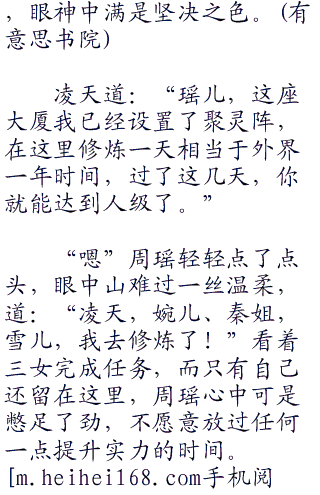 ，眼神中满是坚决之色。(有
意思书院)
凌天道：“瑶儿，这座
大厦我已经设置了聚灵阵，
在这里修炼一天相当于外界
一年时间，过了这几天，你
就能达到人级了。”
“嗯”周瑶轻轻点了点
头，眼中山难过一丝温柔，
道：“凌天，婉儿、秦姐，
雪儿，我去修炼了！”看着
三女完成任务，而只有自己
还留在这里，周瑶心中可是
憋足了劲，不愿意放过任何
一点提升实力的时间。
[m.heihei168.com手机阅